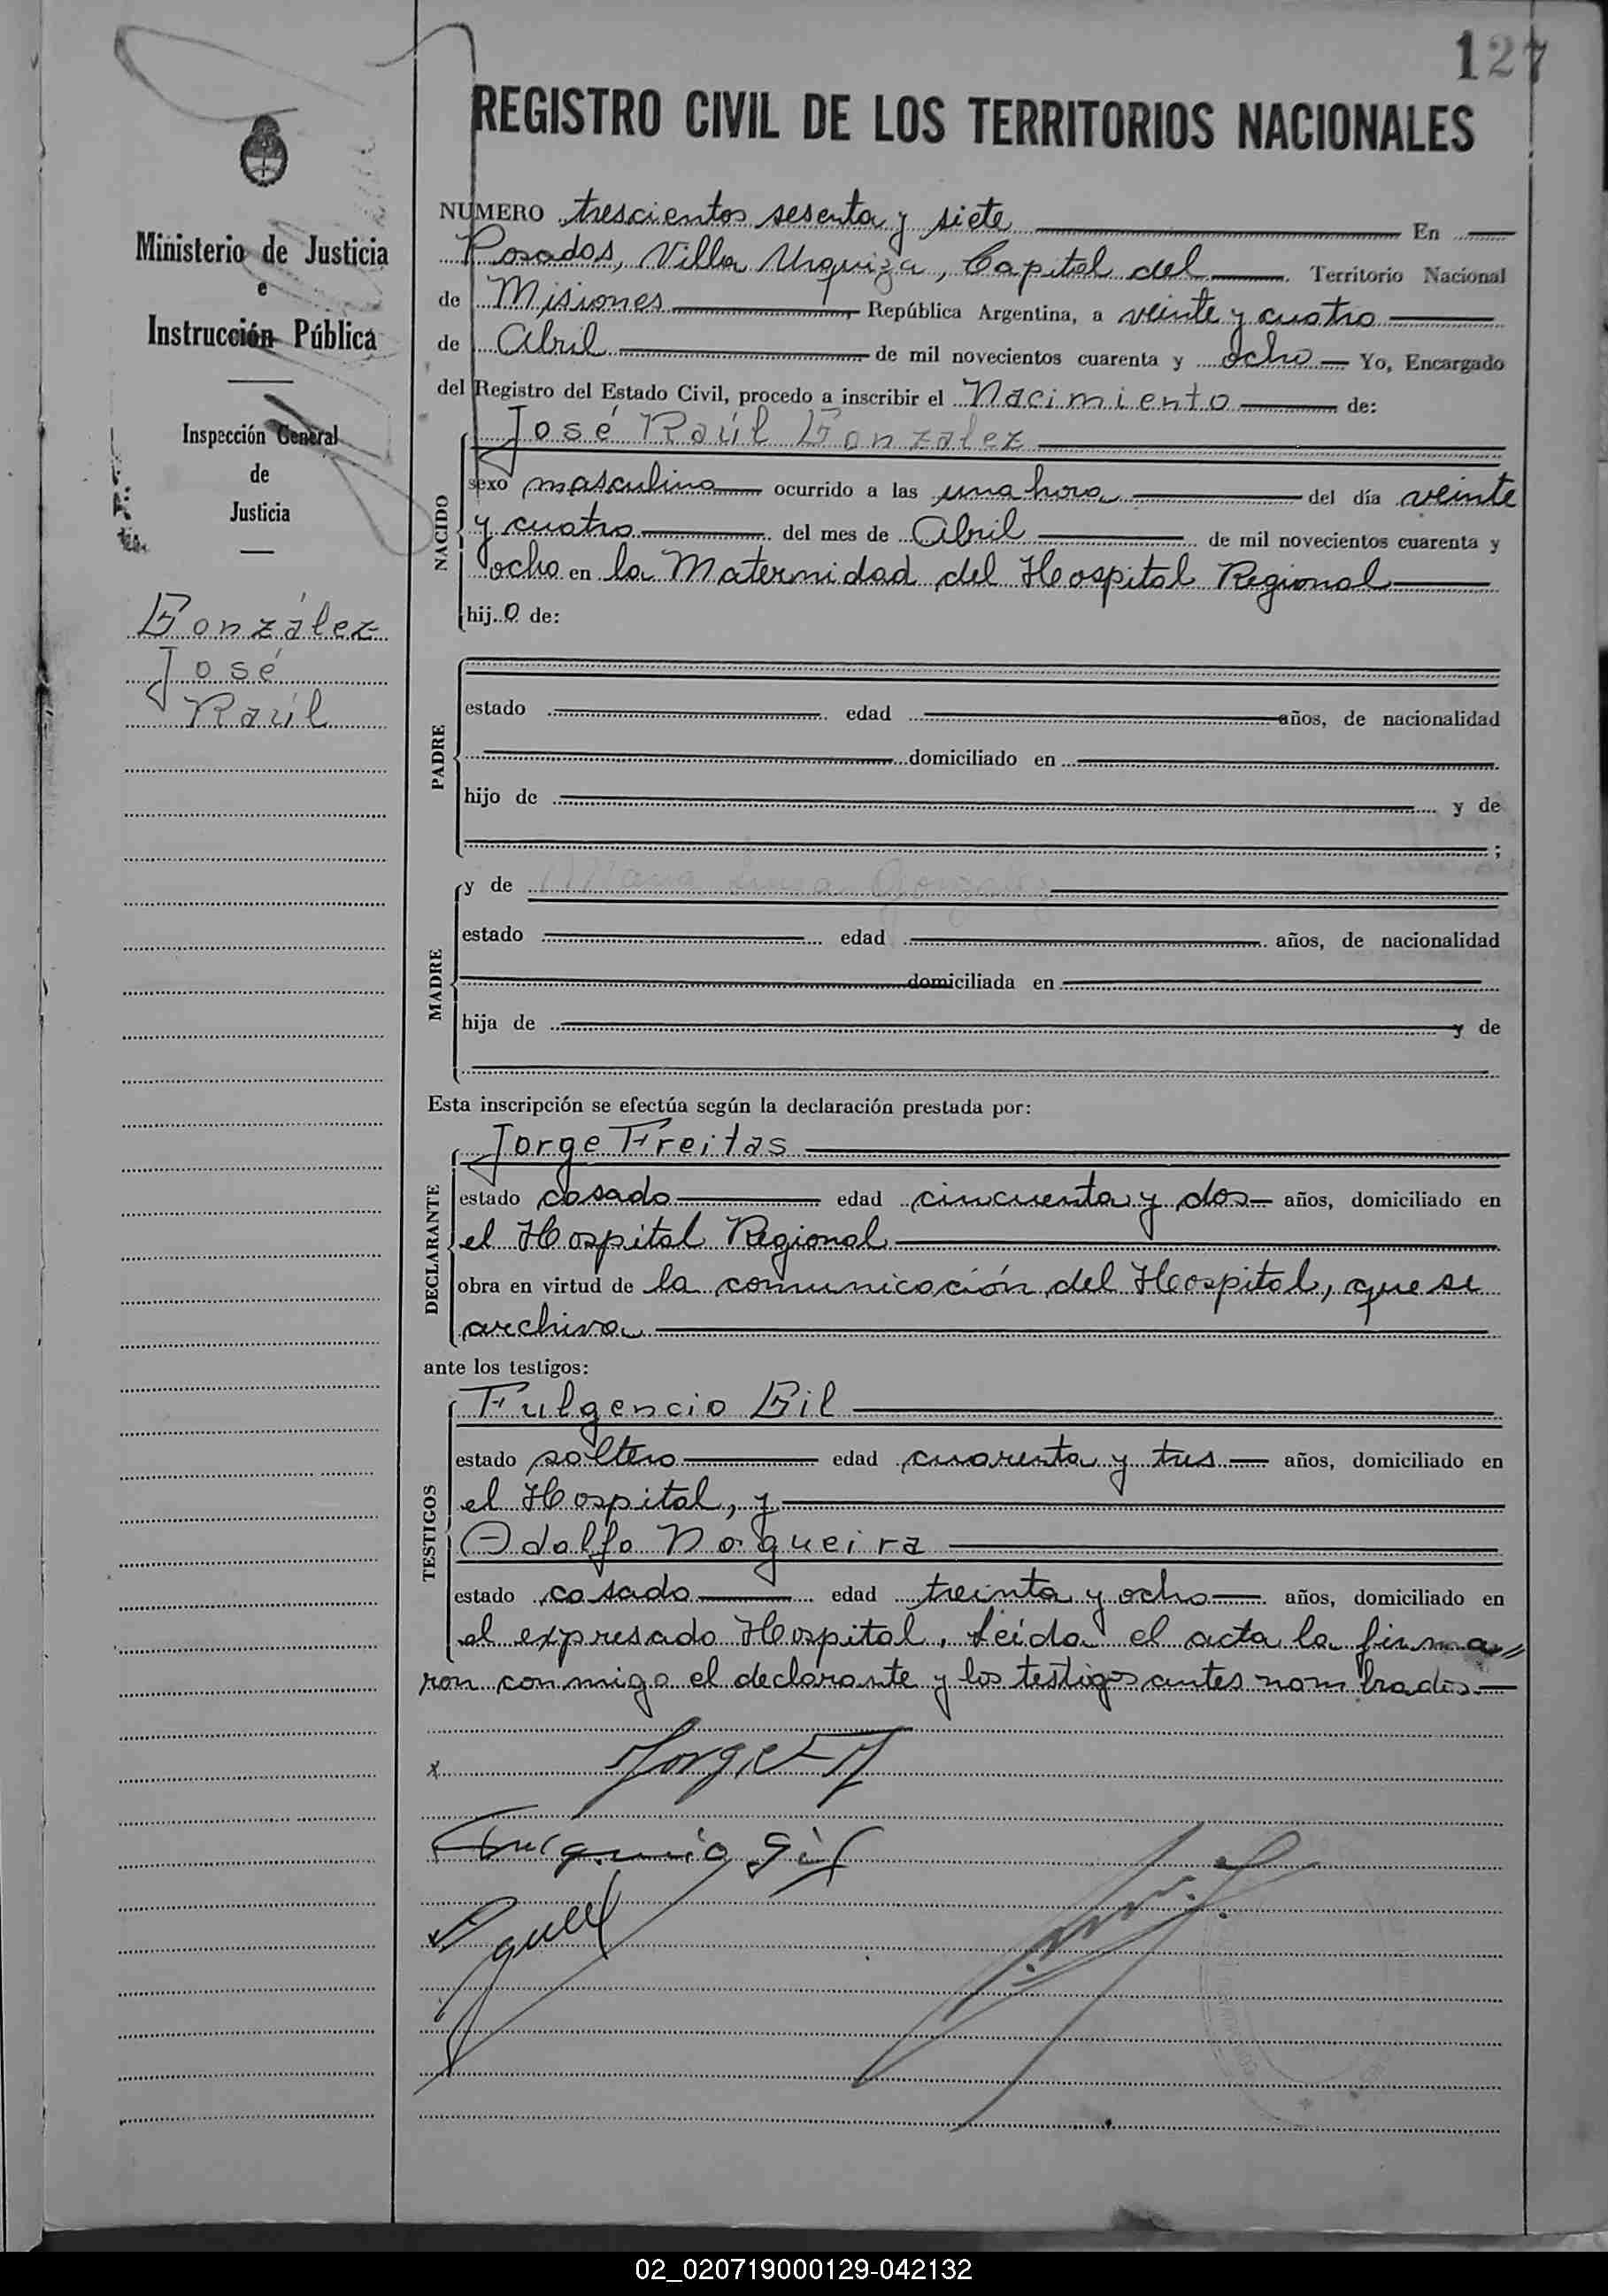 127
REGISTRO CIVIL DE LOS TERRITORIOS NACIONALES
Ministerio de Justicia
e
Instrucción Pública
Inspección General
de
Justicia
González
José
Raúl
NUMERO trescientos sesenta y siete En
Posadas, Villa Urquiza, Capital del Territorio Nacional
de Misiones, República Argentina, a veinte y cuatro
de Abril de mil novecientos cuarenta y ocho Yo, Encargado
del Registro del Estado Civil, procedo a inscribir el Nacimiento de:
NACIDO
José Raúl González
sexo masculino ocurrido a las una hora del día veinte
y cuatro del mes de Abril de mil novecientos cuarenta y
ocho en la Maternidad del Hospital Regional
hijo de:
PADRE
estado edad años, de nacionalidad
domiciliado en
hijo de y de
;
MADRE
y de Maria Luisa Gonzalez
estado edad años, de nacionalidad
domiciliada en
hija de y de
Esta inscripción se efectúa según la declaración prestada por:
DECLARANTE
Jorge Freitas
estado casado edad cincuenta y dos años, domiciliado en
el Hospital Regional
obra en virtud de la comunicación del Hospital, que se
archiva
ante los testigos:
TESTIGOS
Fulgencio Gil
estado soltero edad cuarenta y tres años, domiciliado en
el Hospital, y
Adolfo Nogueira
estado casado edad treinta y ocho años, domiciliado en
el expresado Hospital. Leída el acta la firma=
ron conmigo el declarante y los testigos antes nombrados.
x Jorge F
Fulgencio Gil
02_020719000129-042132